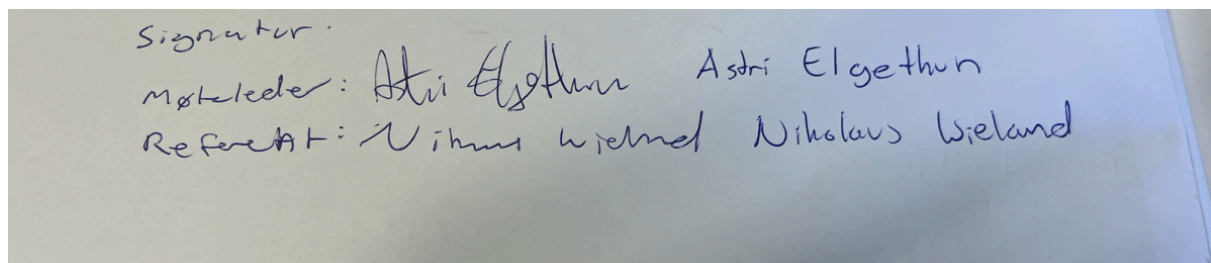 Signatur.
Møteleder: Astri Elgethun Astri Elgethun
Referat: Nikolaus Wieland Nikolaus Wieland